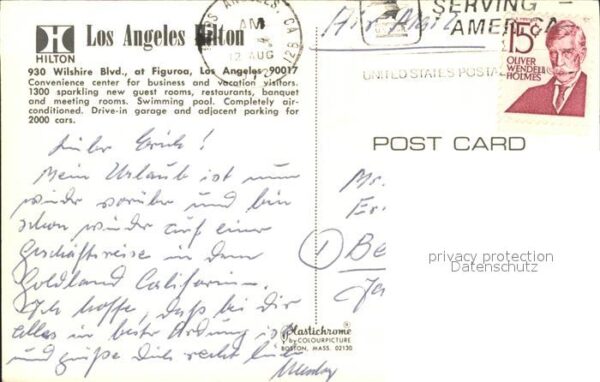 HILTON
Los Angeles Hilton
930 Wilshire Blvd., at Figuroa, Los Angeles 90017
Convenience center for business and vacation visitors.
1300 sparkling new guest rooms, restaurants, banquet
and meeting rooms. Swimming pool. Completely air-
conditioned. Drive-in garage and adjacent parking for
2000 cars.
LOS ANGELES, CA
AM
12 AUG
Air Mail
SERVING
AMERICA
UNITED STATES POSTAL
15¢
OLIVER
WENDELL
HOLMES
POST CARD
Lieber Erich!
Mein Urlaub ist nun
wieder vorüber und bin
schon wieder auf einer
Geschäftsreise in dem
Goldland Californien.
Ich hoffe, daß bei dir
alles in bester Ordnung ist
und grüße dich recht
Mr.
Er
1
Be
privacy protection
Datenschutz
Plastichrome
by COLOURPICTURE
BOSTON, MASS. 02130